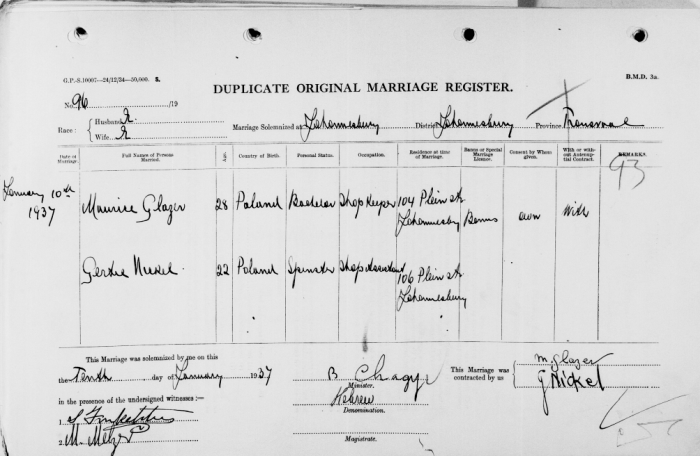 G.P.-S.10007—24/12/34—50,000. S.
B.M.D. 3a.
DUPLICATE ORIGINAL MARRIAGE REGISTER.
No. 96 /19
Race: Husband E.
Wife E.
Marriage Solemnized at Johannesburg District Johannesburg Province Transvaal
Date of Marriage. Full Names of Persons Married. Age. Country of Birth. Personal Status. Occupation. Residence at time of Marriage. Banns or Special Marriage Licence. Consent by Whom given. With or without Antenuptial Contract. REMARKS.
93
January 10th 1937
Maurice Glazer 28 Poland Bachelor Shop Keeper 104 Plein St Johannesburg Banns own With
Gertie Nickel. 22 Poland Spinster Shop Assistant 106 Plein St Johannesburg
This Marriage was solemnized by me on this
the Tenth day of January 1937
B Chagy
Minister.
Hebrew
Denomination.
Magistrate.
This Marriage was contracted by us
M. Glazer
G Nickel
in the presence of the undersigned witnesses :—
1.
2. M. Melzer